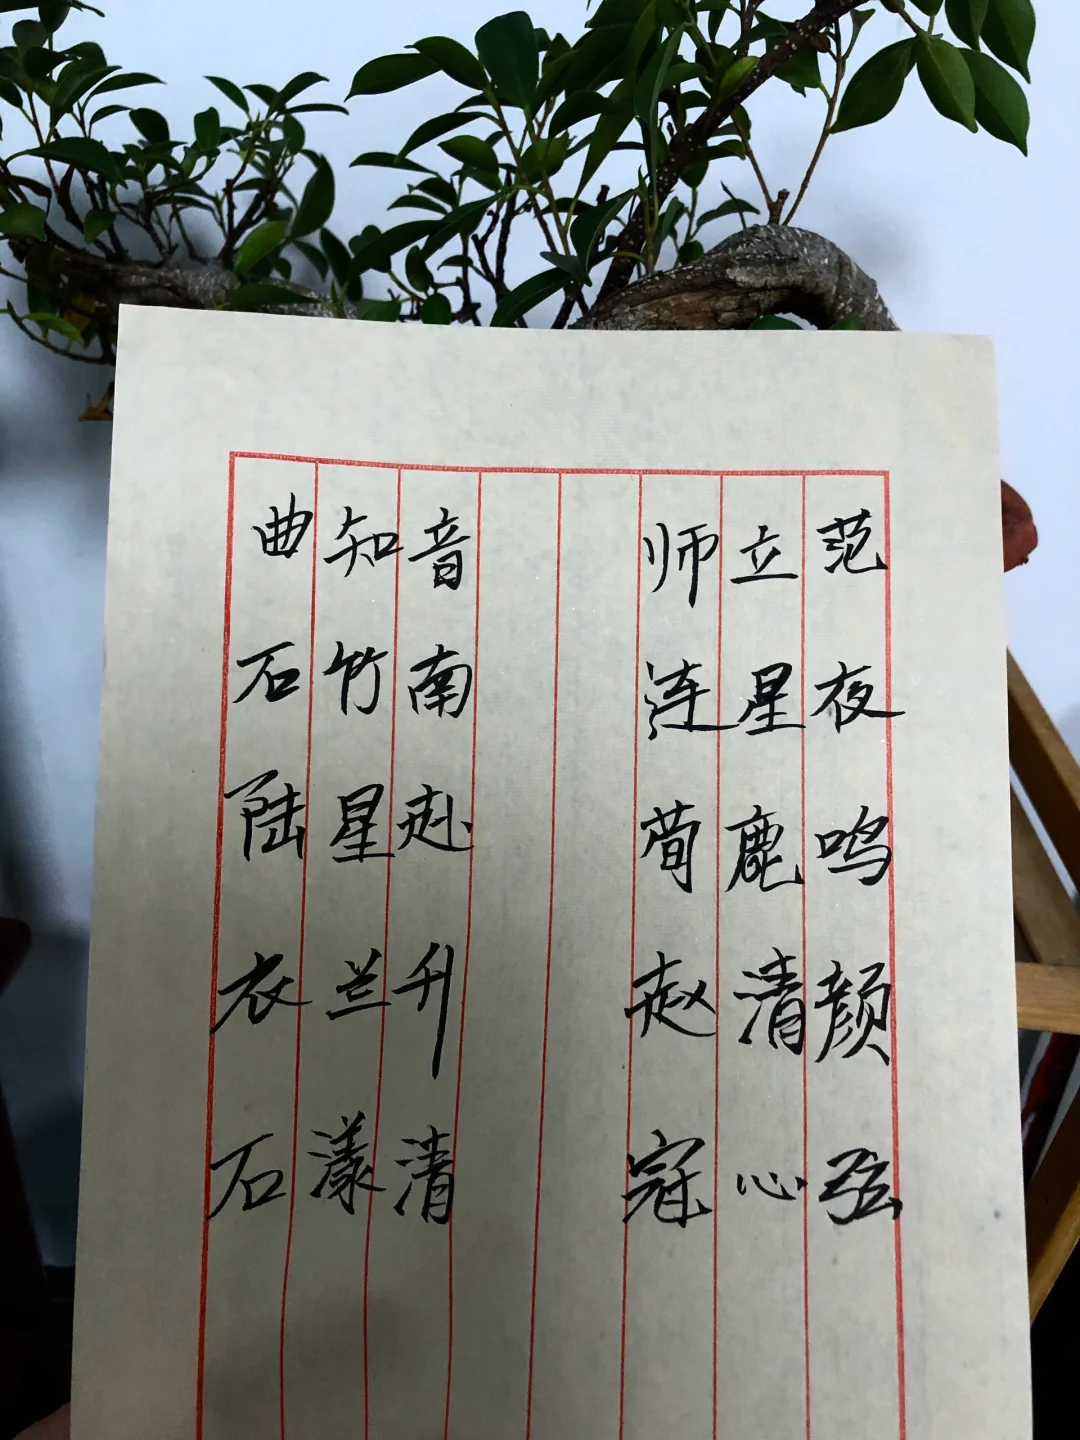 曲知音 师立范
石竹南 连星夜
陆星赴 荀鹿鸣
衣兰升 赵清颜
石漾清 寇心弦